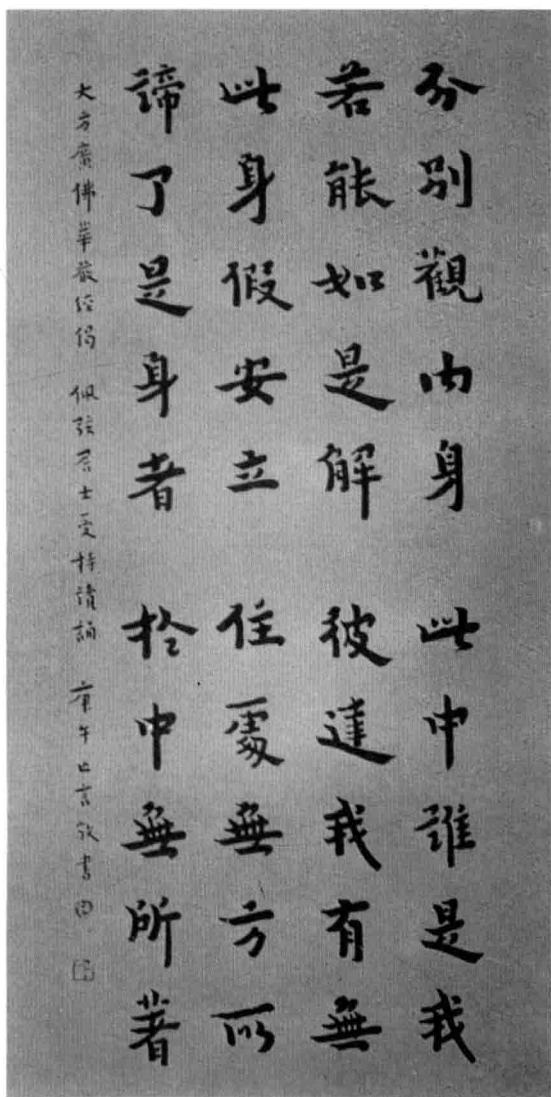 分別觀內身 此中誰是我
若能如是解 彼達我有無
此身假安立 住處無方所
諦了是身者 於中無所著
大方廣佛華嚴經偈 佩弦居士受持讀誦 庚午止言敬書